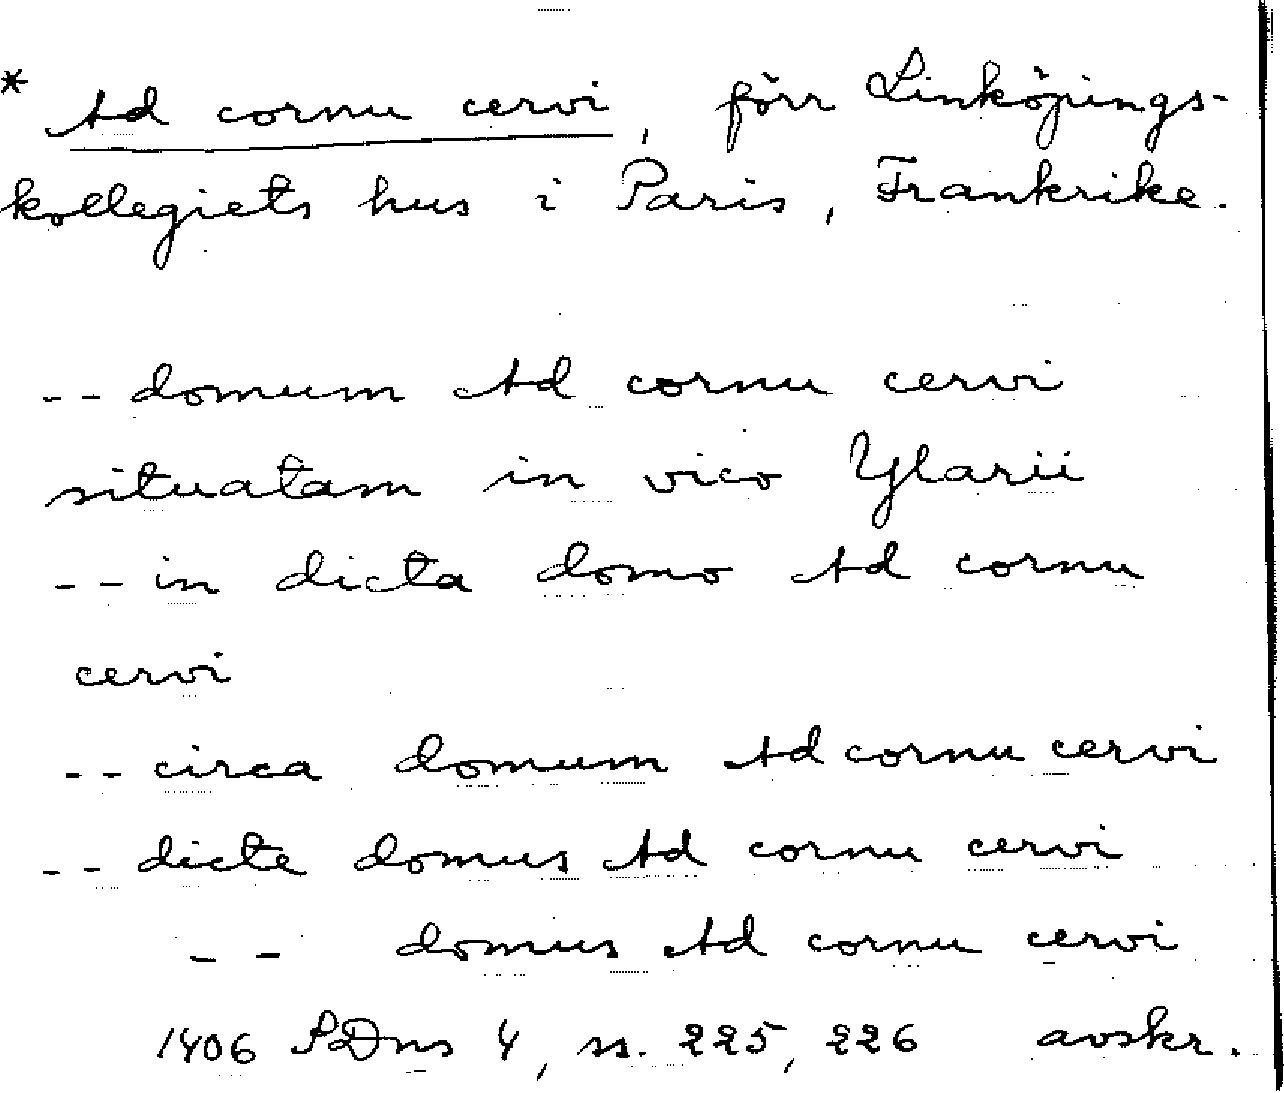 * Ad cornu cervi, förr Linköpings-
kollegiets hus i Paris, Frankrike.
-- domum Ad cornu cervi
situatam in vico Ylarii
-- in dicta domo Ad cornu
cervi
-- circa domum Ad cornu cervi
-- dicte domus Ad cornu cervi
-- domus Ad cornu cervi
1406 SDns 4, s. 225, 226 avskr.